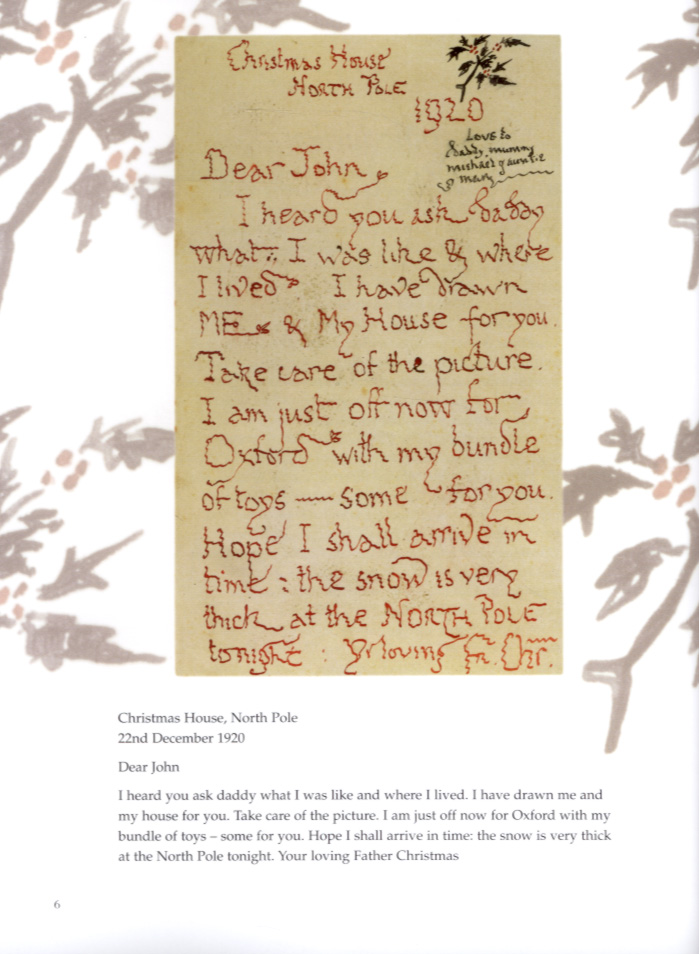 Christmas House
North Pole
1920
Love to
daddy, mummy
michael & auntie
mary
Dear John
I heard you ask daddy
what I was like & where
I lived. I have drawn
ME & My House for you.
Take care of the picture.
I am just off now for
Oxford with my bundle
of toys — some for you.
Hope I shall arrive in
time : the snow is very
thick at the NORTH POLE
tonight : Yr loving Fr. Chr.
Christmas House, North Pole
22nd December 1920
Dear John
I heard you ask daddy what I was like and where I lived. I have drawn me and
my house for you. Take care of the picture. I am just off now for Oxford with my
bundle of toys – some for you. Hope I shall arrive in time: the snow is very thick
at the North Pole tonight. Your loving Father Christmas
6